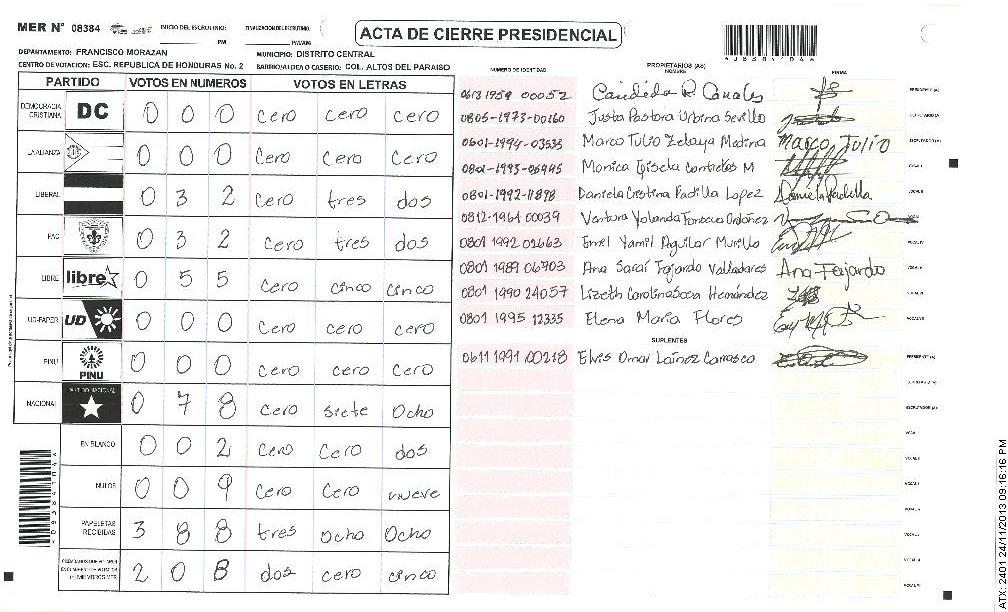 MER N° 08384
INICIO DEL ESCRUTINIO:
PM
FINALIZACION DEL ESCRUTINIO:
PM/AM
ACTA DE CIERRE PRESIDENCIAL
DEPARTAMENTO: FRANCISCO MORAZAN
MUNICIPIO: DISTRITO CENTRAL
CENTRO DE VOTACION: ESC. REPUBLICA DE HONDURAS No. 2
BARRIO/ALDEA O CASERIO: COL. ALTOS DEL PARAISO
PARTIDO VOTOS EN NUMEROS VOTOS EN LETRAS
DEMOCRACIA CRISTIANA DC 0 0 0 cero cero cero
LA ALIANZA 0 0 0 cero cero cero
LIBERAL 0 3 2 cero tres dos
PAC 0 3 2 cero tres dos
LIBRE libre 0 5 5 cero cinco cinco
UD-FAPER UD 0 0 0 cero cero cero
PINU PINU 0 0 0 cero cero cero
NACIONAL PARTIDO NACIONAL 0 7 8 cero siete ocho
EN BLANCO 0 0 2 cero cero dos
NULOS 0 0 9 cero cero nueve
PAPELETAS RECIBIDAS 3 8 8 tres ocho ocho
2 0 8 dos cero cinco
NUMERO DE IDENTIDAD
PROPIETARIOS (AS)
NOMBRE
FIRMA
0613 1959 00052 Candida R. Canales PRESIDENTE (A)
0805-1975-00160 Justa Pastora Urbina Sevillo SECRETARIO (A)
0601-1994-03535 Marco Tulio Zelaya Medina Marco Tulio ESCRUTADOR (A)
0801-1993-06445 Monica Gisela Contreras M VOCAL I
0801-1992-11898 Daniela Cristina Padilla Lopez Daniela Padilla VOCAL II
0812-1961 00039 Ventura Yolanda Fonseca Ordoñez
0801 1992 02663 Emil Yamil Aguilar Murillo VOCAL IV
0801 1989 06703 Ana Saraí Fajardo Valladares Ana Fajardo VOCAL V
0801 1990 24057 Lizeth Carolina Sosa Hernández VOCAL VI
0801 1995 12335 Elena Maria Flores VOCAL VII
SUPLENTES
0611 1991 00218 Elvis Omar Laínez Carrasco PRESIDENTE (A)
SECRETARIO (A)
ESCRUTADOR (A)
VOCAL I
VOCAL II
ATX: 2401 24/11/2013 09:16:16 PM